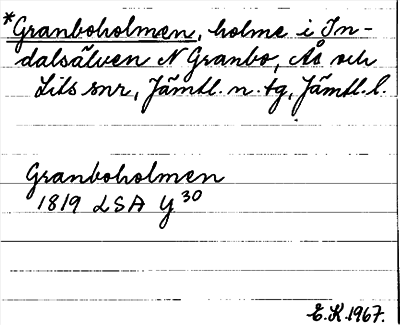 *Granboholmen, holme i In-
dalsälven N Granbo, Ås och
Lits snr, Jämtl. n. tg, Jämtl. l.
Granboholmen
1819 LSA Y³⁰
E.K. 1967.